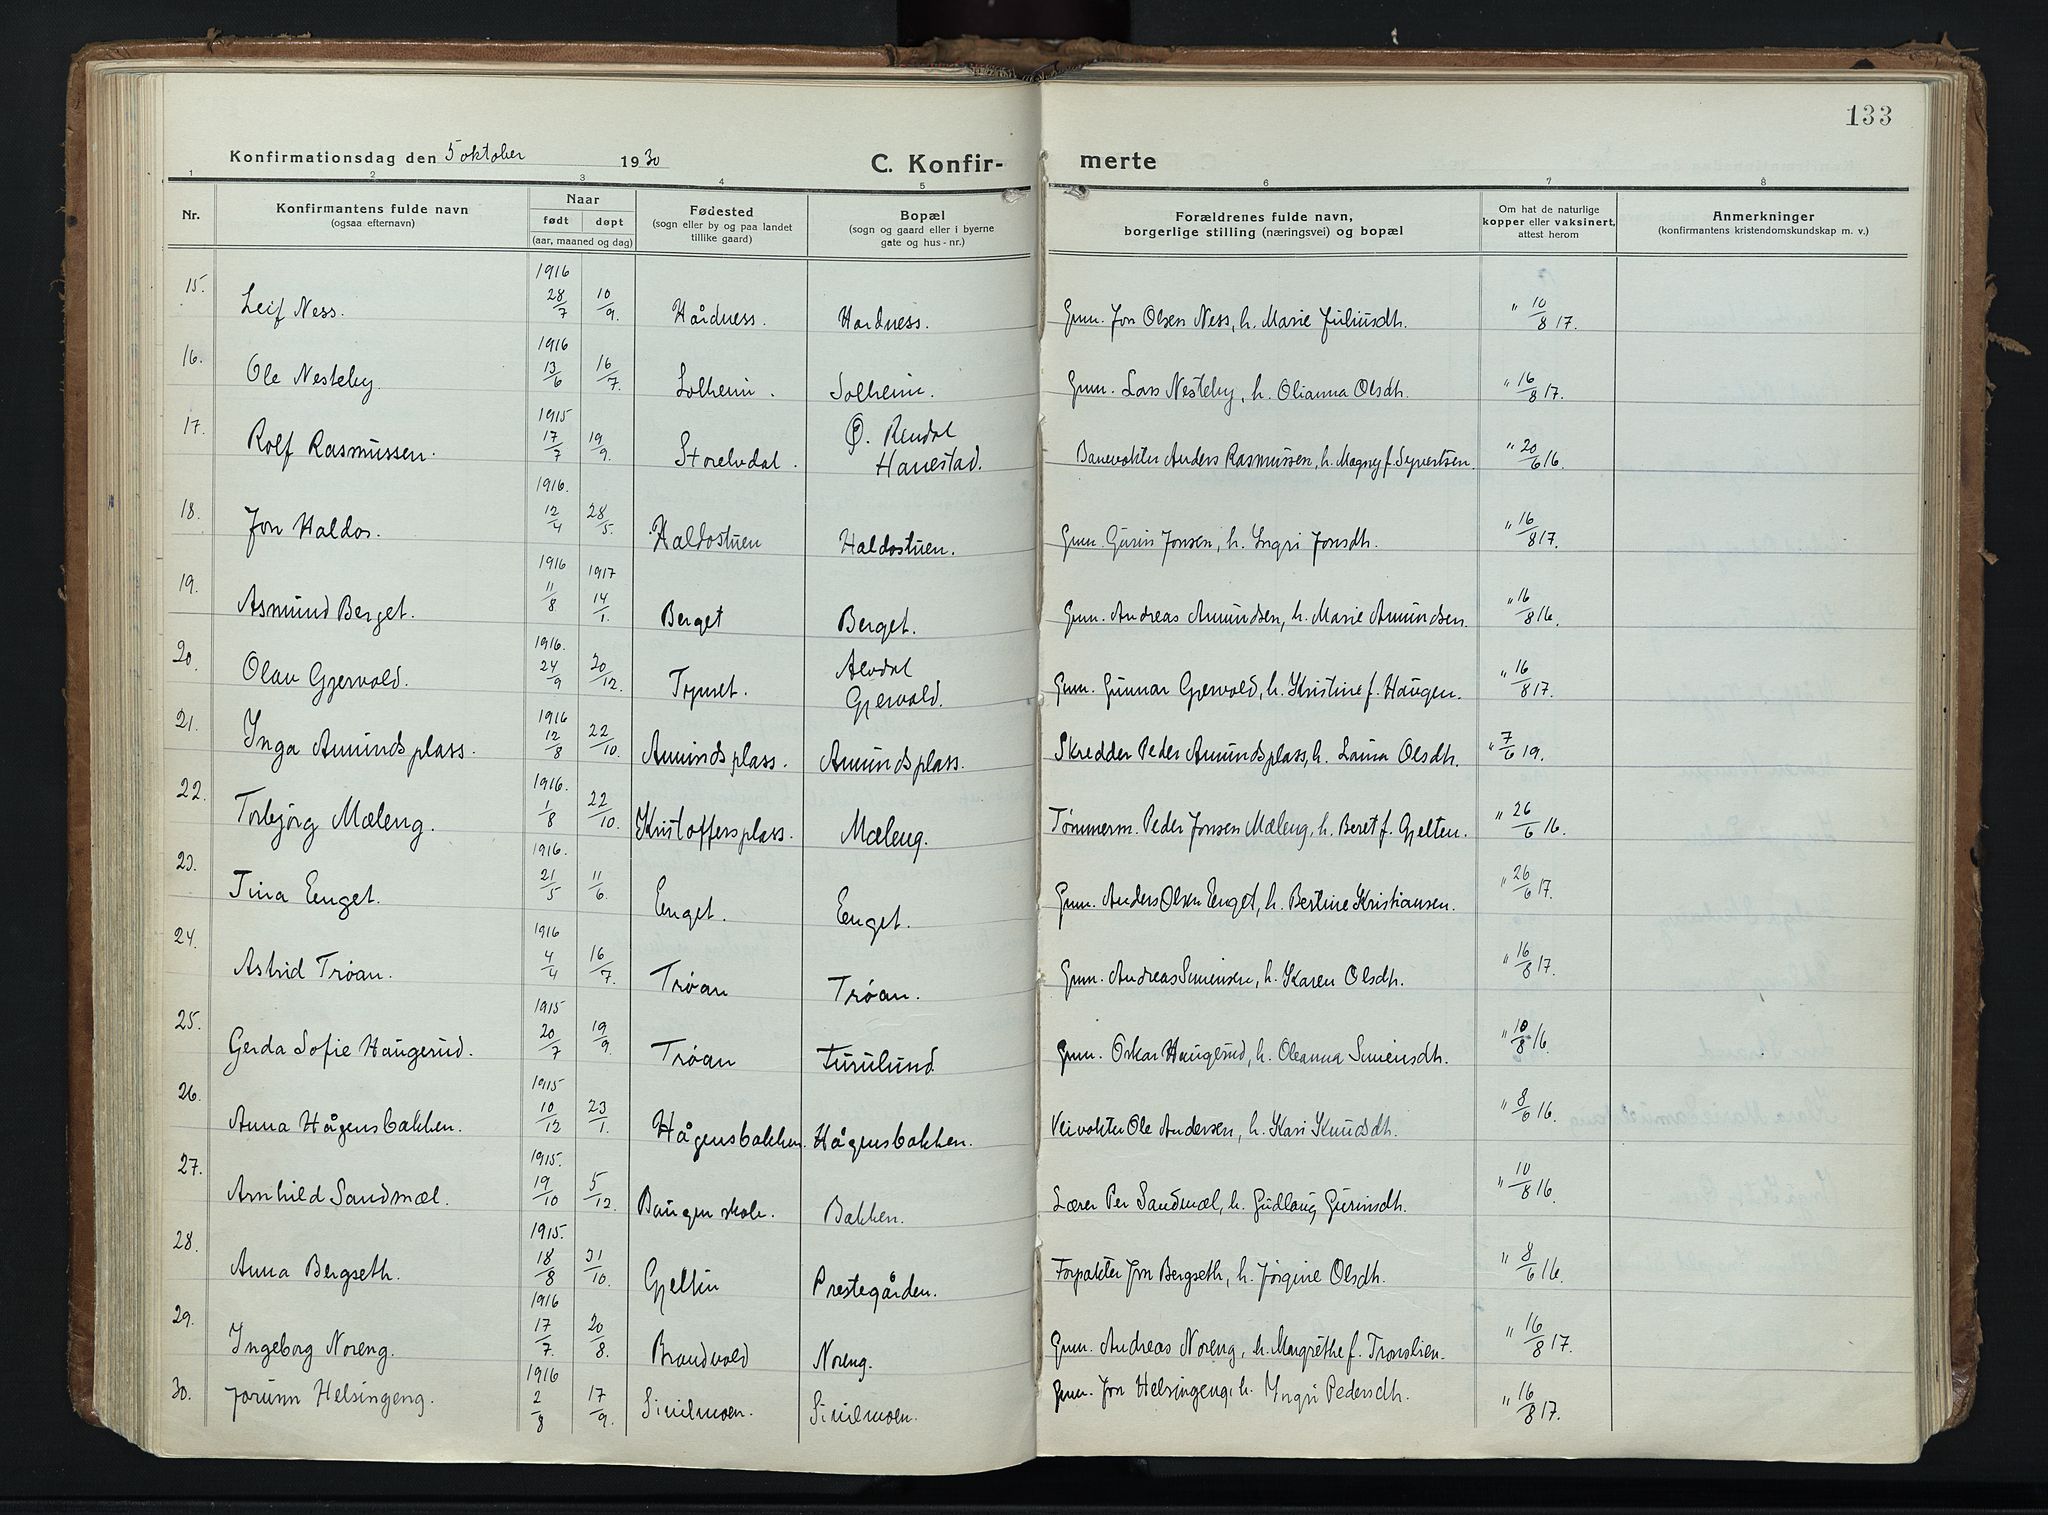 133
Konfirmationsdag den 5 oktober 1930
C. Konfir- merte
1 2 3 4 5 6 7 8
Nr.
Konfirmantens fulde navn
(ogsaa efternavn)
Naar
født døpt
(aar, maaned og dag)
Fødested
(sogn eller by og paa landet
tillike gaard)
Bopæl
(sogn og gaard eller i byerne
gate og hus-nr.)
Forældrenes fulde navn,
borgerlige stilling (næringsvei) og bopæl
Om hat de naturlige
kopper eller vaksinert,
attest herom
Anmerkninger
(konfirmantens kristendomskundskap m. v.)
1916
15. Leif Ness. 28/7 10/9. Hårdness. Hardness. Gmn. Jon Olsen Ness, h. Marie Juliusdh. " 10/8 17.
1916
16. Ole Nesteby 13/6 16/7. Solheim. Solheim. Gmn. Lars Nesteby, h. Olianna Olsdh. " 16/8 17.
1915 Ø. Rendal
17. Rolf Rasmussen. 17/7 19/9. Storelvdal. Hanestad. Banevokter Anders Rasmussen, h. Magny f. Syvertsen. " 20/6 16.
1916.
18. Jon Haldos. 12/4 28/5. Haldostuen Haldostuen. Gmn. Gurin Jonsen, h. Yngri Jonsdh. " 16/8 17.
1916 1917
19. Asmund Berget. 11/8 14/1. Berget Berget. Gmn. Andreas Amundsen, h. Marie Amundsen. " 16/8 16.
1916. Alvdal
20. Olav Gjervold. 24/9 20/12. Tynset. Gjervold. Gmn. Gunnar Gjervold, h. Kristine f. Haugen. " 16/8 17.
1916
21. Ynga Amundsplass. 12/8 22/10. Amundsplass. Amundsplass. Skredder Peder Amundsplass, h. Laura Olsdh. " 7/6 19.
1916.
22. Torbjørg Mæleng. 1/8 22/10. Kristoffersplass. Mæleng. Tømmerm. Peder Jonsen Mæleng, h. Beret f. Gjelten. " 26/6 16.
1916.
23. Tina Eenget. 21/5 11/6. Eenget. Eenget. Gmn. Anders Olsen Eenget, h. Bertine Kristiansen. " 26/6 17.
1916
24. Astrid Trøan. 4/4 16/7. Trøan Trøan. Gmn. Andreas Simensen, h. Karen Olsdh. " 16/8 17.
1915
25. Gerda Sofie Haugerud. 20/7 19/9. Trøan Furulund Gmn. Oskar Haugerud, h. Oleanna Simensdh. " 10/8 16.
1915
26. Anna Hågensbakken. 10/12 23/1. Hågensbakken. Hågensbakken. Veivokter Ole Andersen, h. Kari Knudsdh. " 8/6 16.
1915.
27. Arnhild Sandmæl. 19/10 5/12. Baugen skole. Bakken. Lærer Per Sandmæl, h. Gudlaug Gurinsdh. " 10/8 16.
1915.
28. Anna Bergseth. 18/8 31/10. Gjelten Prestegården. Forpakter Jon Bergseth, h. Jørgine Olsdh. " 8/6 16.
1916
29. Yngeborg Noreng. 17/7 20/8. Brandvold Noreng. Gmn. Andreas Noreng, h. Margrethe f. Tronslien. " 16/8 17.
1916
30. Jorunn Helsingeng. 2/8 17/9. Sivilmoen. Sivilmoen. Gmn. Jon Helsingeng, h. Yngri Pedersdh. " 16/8 17.